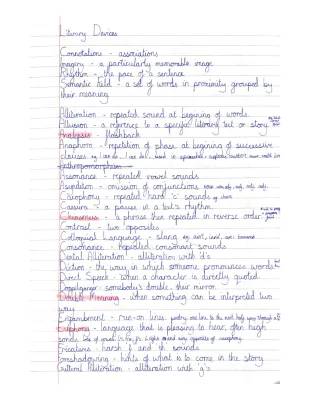 Literary Devices
Connotations - associations
Imagery - a particularly memorable image
Rhythm - the pace of a sentence
Semantic field - a set of words in proximity grouped by
their meaning
Alliteration - repeated sound at beginning of words.
Allusion - a reference to a specific literary text or story
Analepsis - flashback
Anaphora - repetition of phrase at beginning of successive
clauses
Assonance - repeated vowel sounds
Asyndeton - omission of conjunctions
Cacophony - repeated hard 'c' sounds
Caesura - a pause in a text's rhythm.
Chiasmus - a phrase then repeated in reverse order
Contrast - two opposites
Colloquial Language - slang
Consonance - repeated consonant sounds
Dental Alliteration - alliteration with 'd's
Diction - the way in which someone pronounces words
Direct Speech - when a character is directly quoted
Doppelganger - somebody's double, their mirror
Double Meaning - when something can be interpreted two
ways
Enjambment - run-on lines.
Euphony - language that is pleasing to hear, often high
sounds
Fricatives - harsh f and th sounds
Foreshadowing - hints of what is to come in the story
Guttural Alliteration - alliteration with 'g's